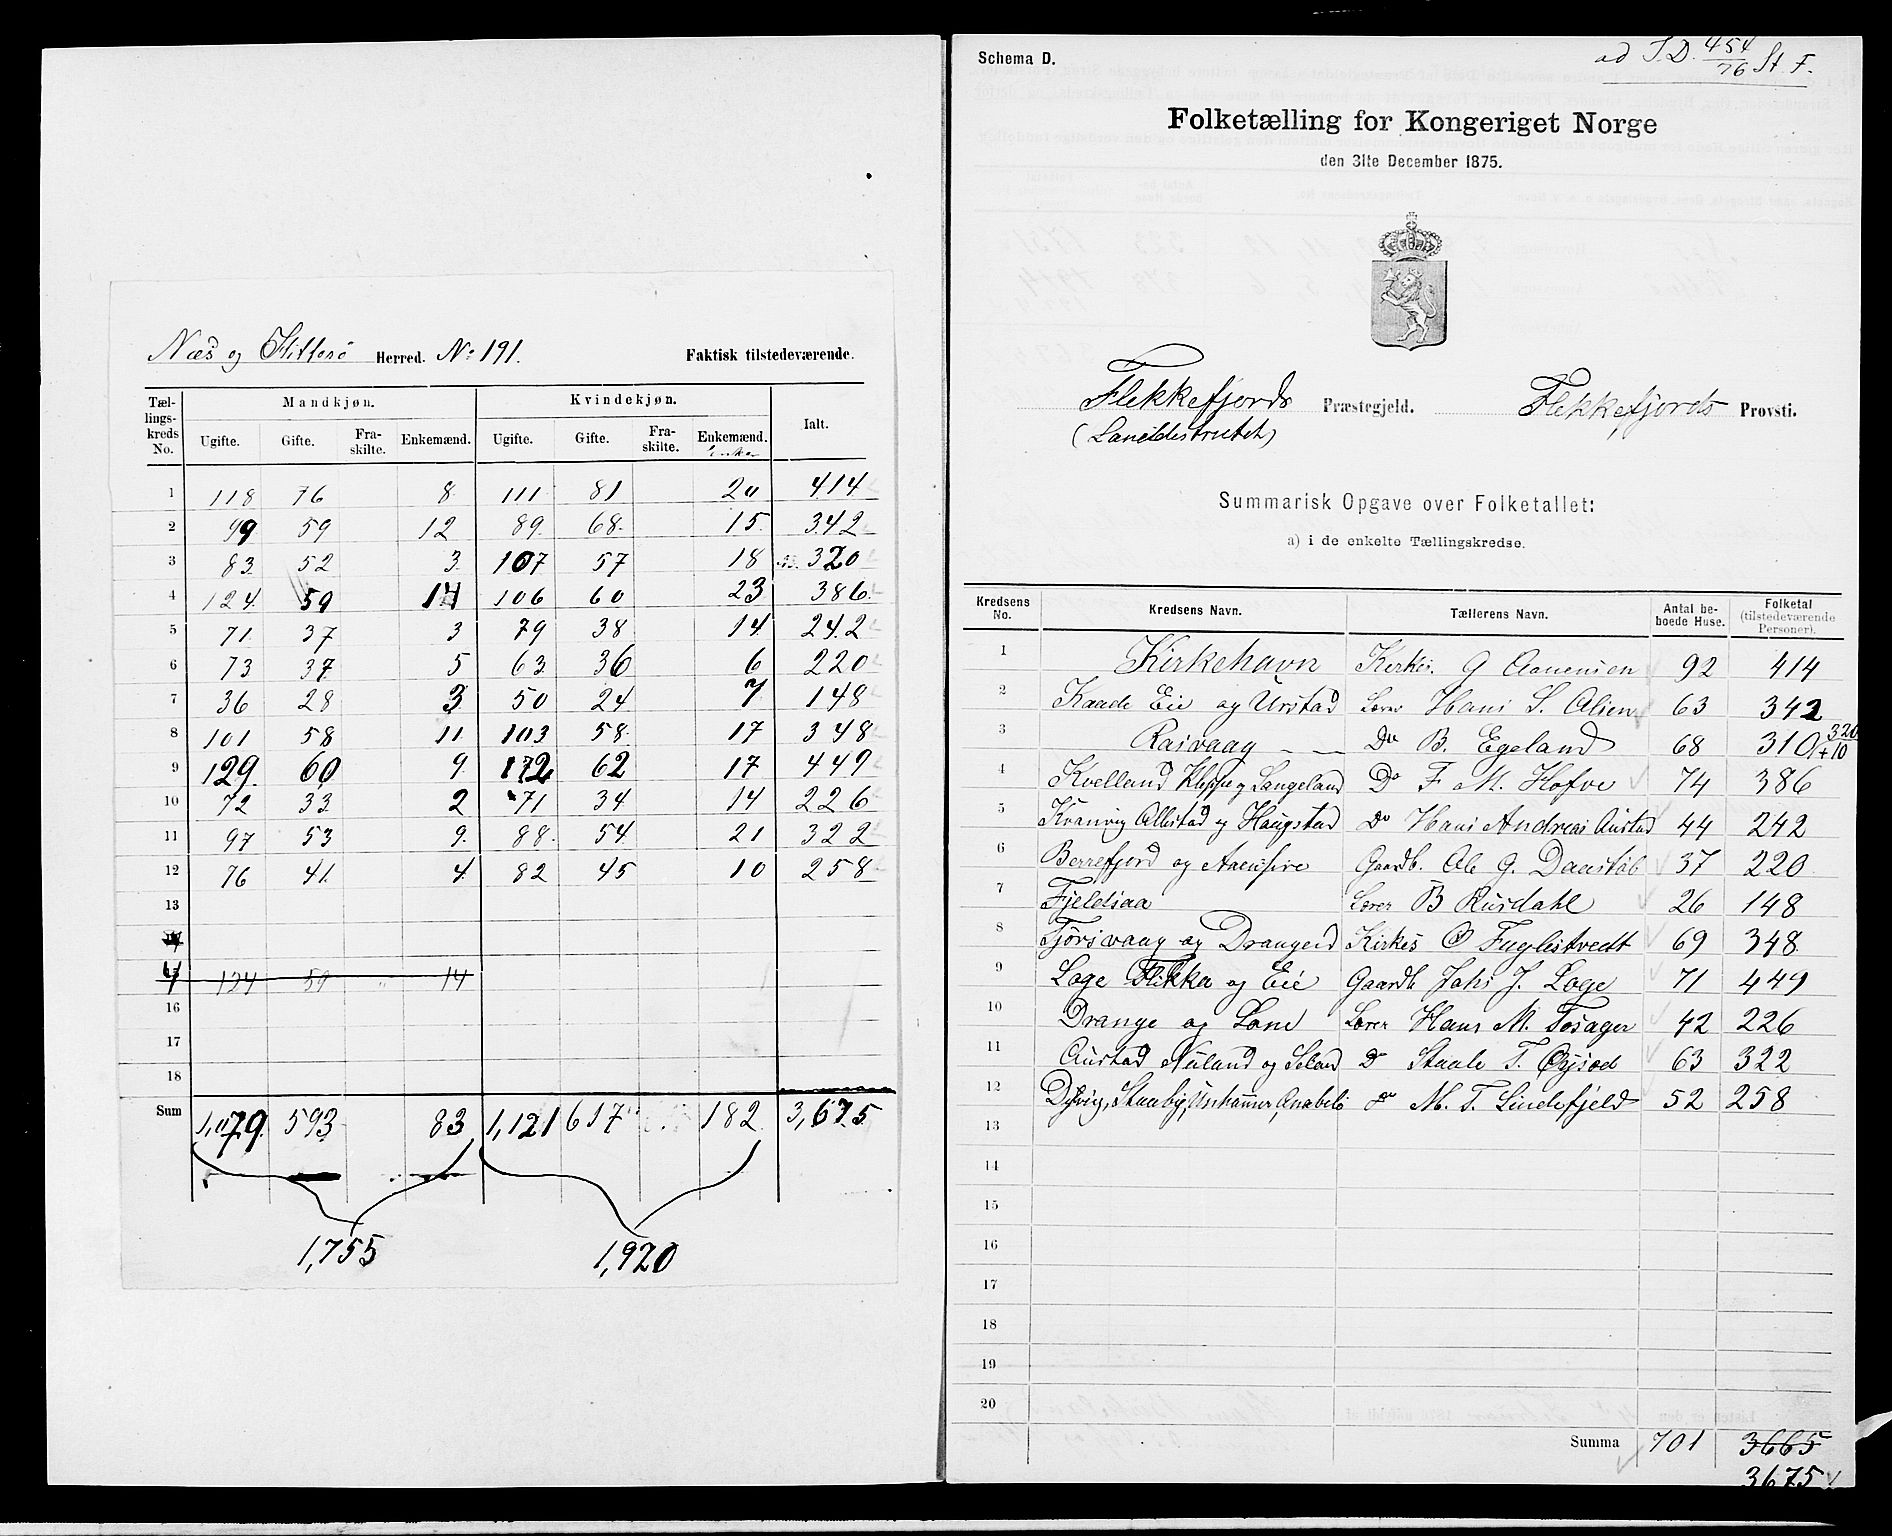 Næs og Hitterø Herred. No 191. Faktisk tilstedeværende.
Tællingskreds No. Mandkjøn. Kvindekjøn. Ialt.
Ugifte. Gifte. Fraskilte. Enkemænd. Ugifte. Gifte. Fraskilte. Enkemænd. Enker
1 118 76 8 111 81 20 414
2 99 59 12 89 68 15 342
3 83 52 3 107 57 18 320
4 124 59 14 106 60 23 386
5 71 37 3 79 38 14 242
6 73 37 5 63 36 6 220
7 36 28 3 50 24 7 148
8 101 58 11 103 58 17 348
9 129 60 9 172 62 17 449
10 72 33 2 71 34 14 226
11 97 53 9 88 54 21 322
12 76 41 4 82 45 10 258
13
124 59 " 14
16
17
18
Sum 1,079 593 83 1,121 617 182 3,675
1,755 1,920
Schema D.
ad S.D. 454/76 St. F.
Folketælling for Kongeriget Norge
den 31te December 1875.
Flekkefjords Præstegjeld. Flekkefjords Provsti.
(Landdistriktet)
Summarisk Opgave over Folketallet:
a) i de enkelte Tællingskredse.
Kredsens No. Kredsens Navn. Tællerens Navn. Antal beboede Huse. Folketal (tilstedeværende Personer).
1 Kirkehavn Kirkes. G Aanensen 92 414
2 Kaade Eie og Urstad Lærer Hans S. Olsen 63 342
3 Rasvaag Do B. Egeland 68 310 +10 320
4 Kvelland Kleppe og Langeland Do F M. Hofve 74 386
5 Kvanvig Allestad og Haugstad Do Hans Andreas Austad 44 242
6 Berrefjord og Aaensire Gaardb. Ole G. Daastøl 37 220
7 Fjeldsaa Lærer B Rusdahl 26 148
8 Tjørsvaag og Drangeid Kirkes O Fuglestvedt 69 348
9 Loge Flikka og Eie Gaardb Johs J. Loge 71 449
10 Drange og Lone Lærer Hans M. Tosager 42 226
11 Austad Nuland og Seland Do Staale T. Øysæd 63 322
12 Dyvig, Stueby, Urshammer, Anabelø do M. T. Lindefjeld 52 258
13
14
15
16
17
18
19
20
Summa 701 3665
3675